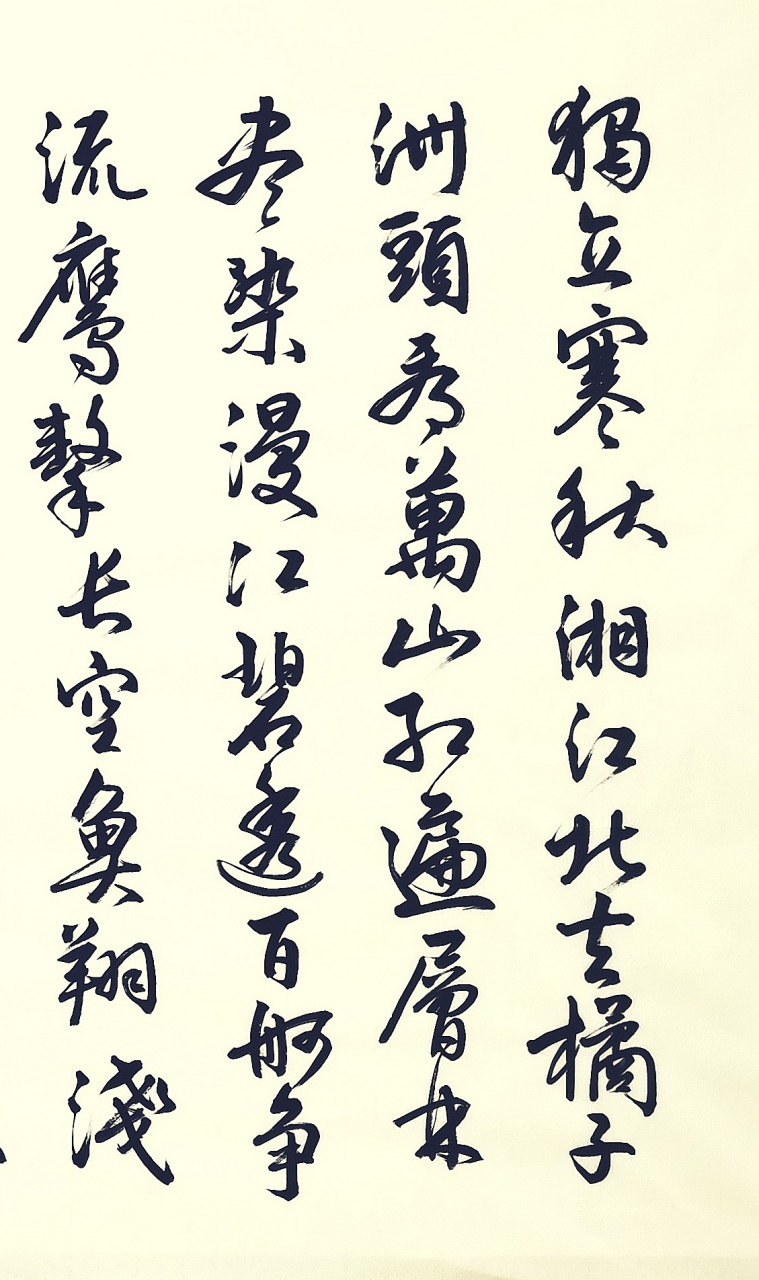 獨立寒秋湘江北去橘子
洲頭看萬山紅遍層林
盡染漫江碧透百舸争
流鹰擊长空魚翔淺